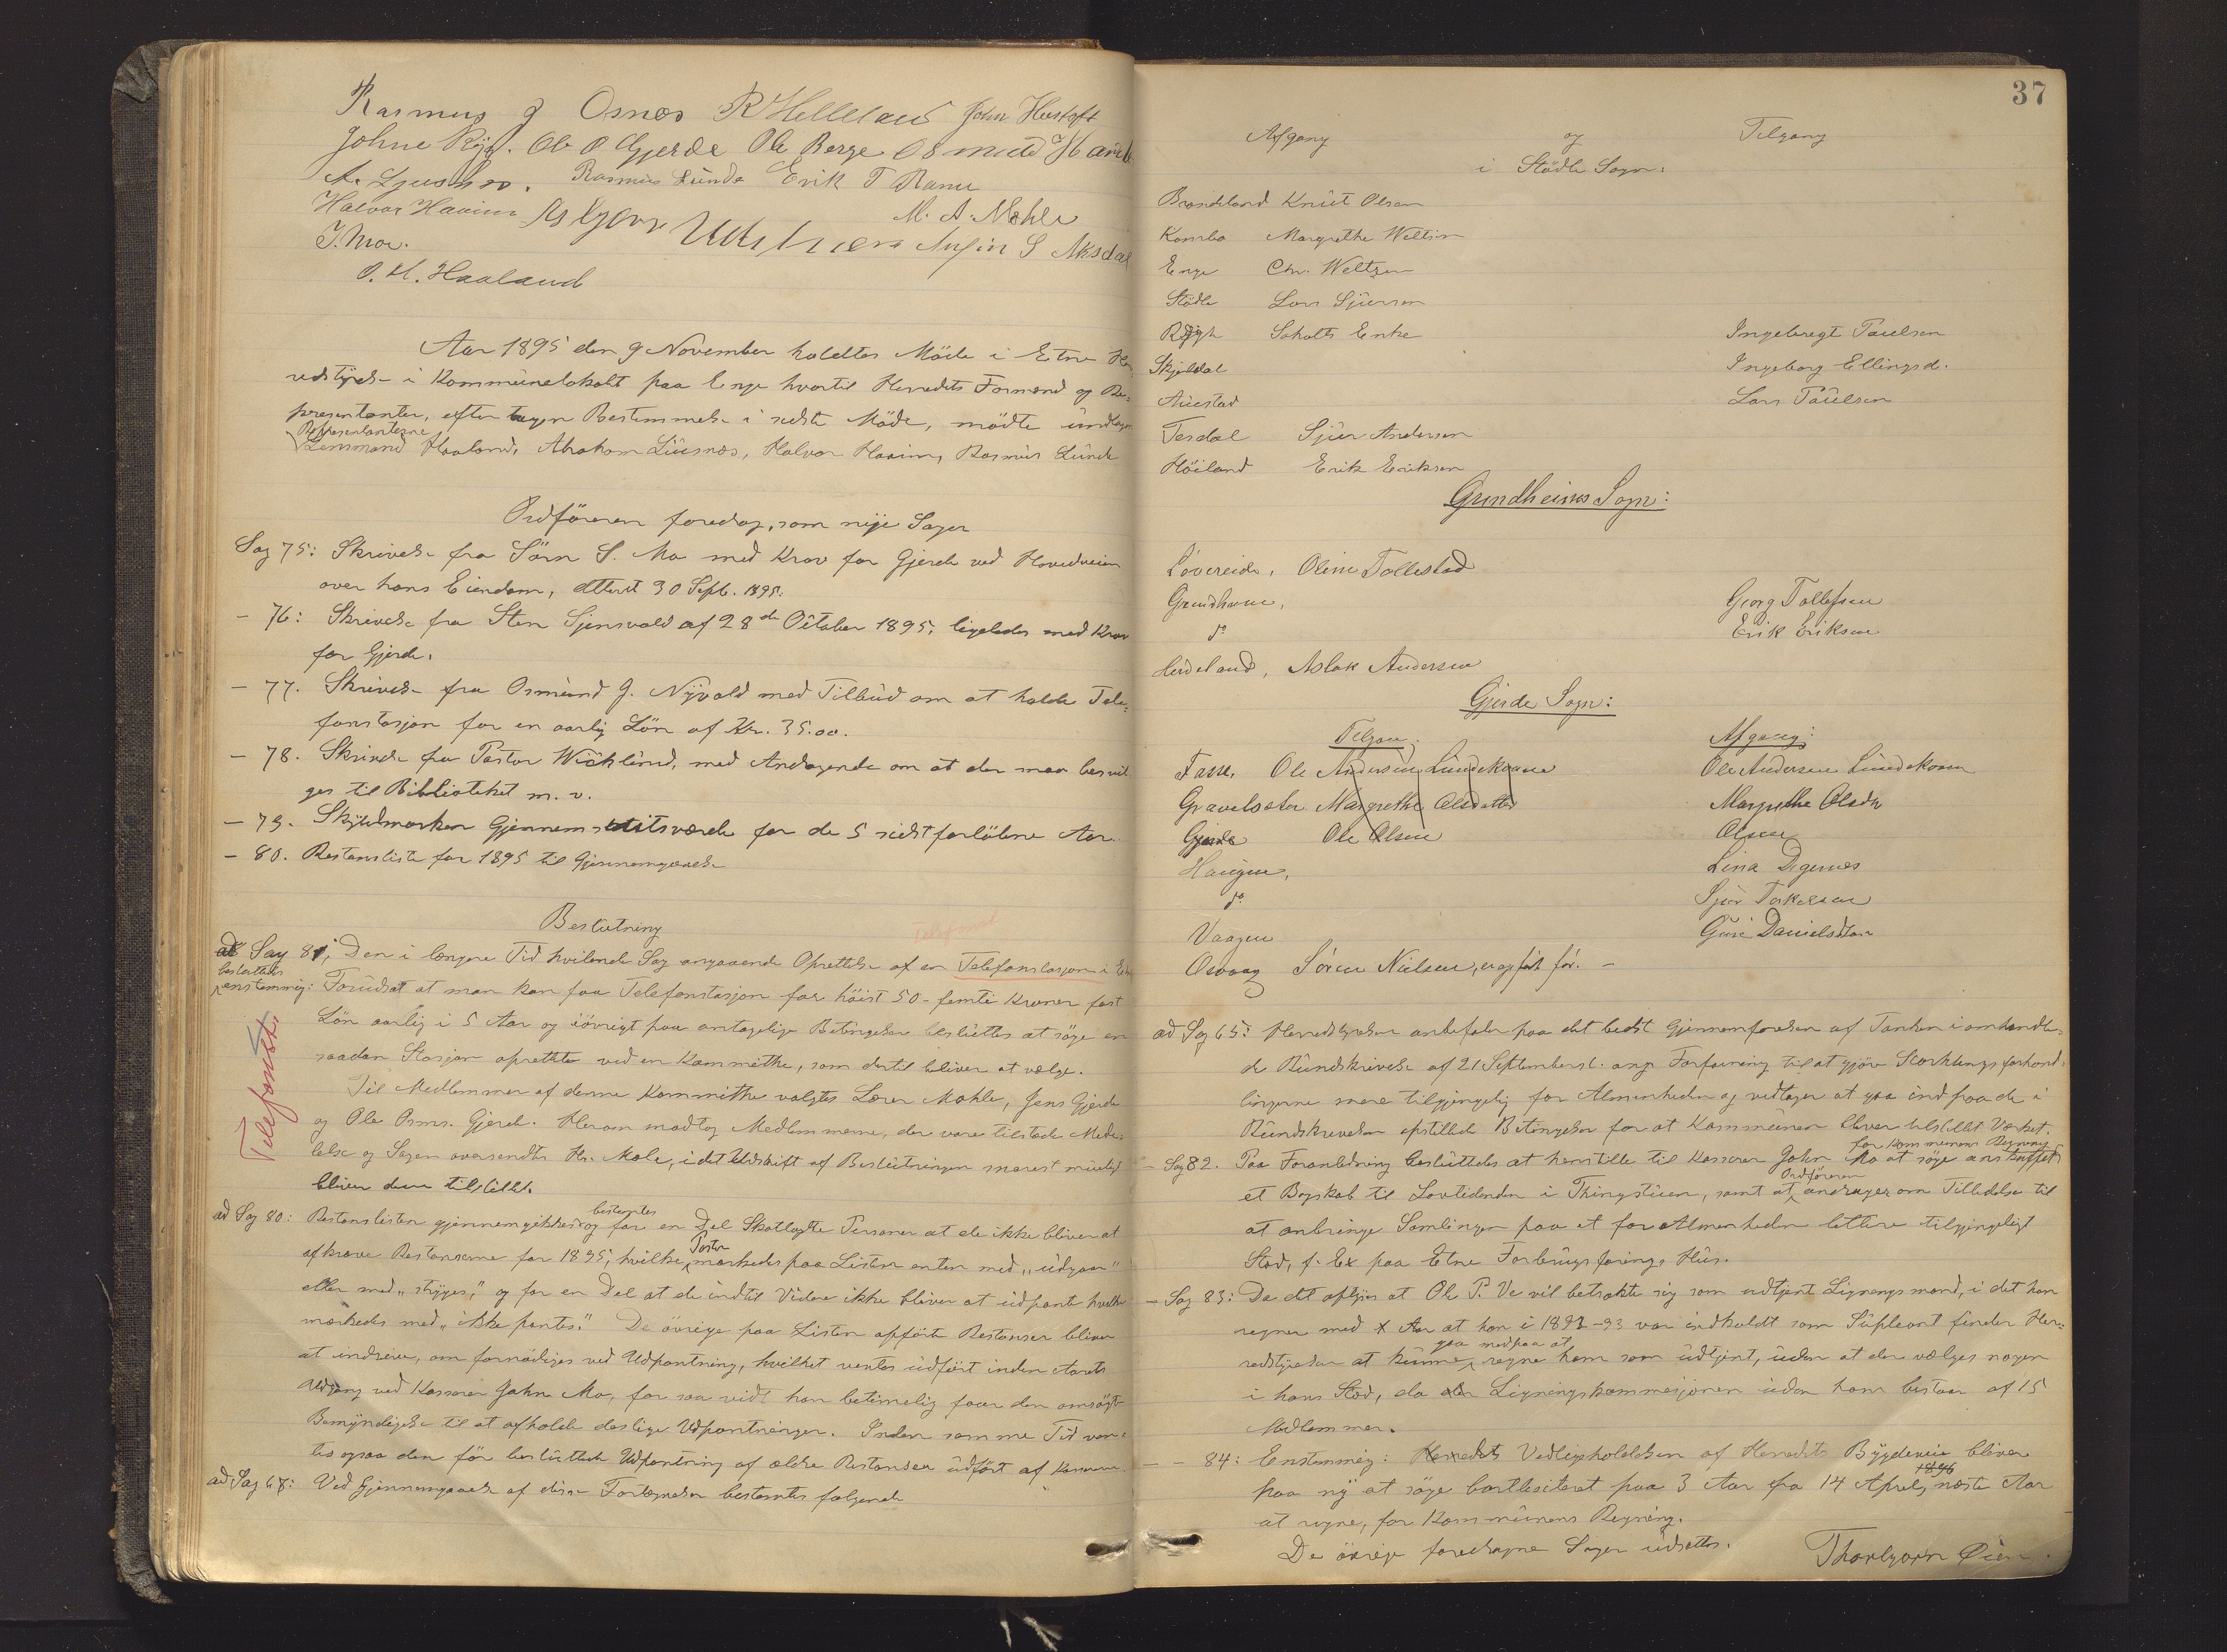 Rasmus J Osnes R Helleland John Hustoft
Johne Ryg. Ole O Gjerde Ole Berge Osmund
A. Ljusnes. Rasmus Lunde Erik T Ramu
Halvor Haaim M. A. Mæhle
I. Moe. S Aksdal
O. H. Haaland
Aar 1895 den 9 November holdtes Möde i Etne Her-
redstyrelse i Kommunelokalet paa Enge hvortil Herredets Formænd og Re-
presentanter, efter tagen Bestemmelse i sidste Möde, mödte undtagen
Representanterne
Lensmand Haaland, Abraham Liusnes, Halvor Haaim, Rasmus Lunde
Ordföreren foredrog, som nye Sager
Sag 75: Skrivelse fra Sörn S. Mo med Krav for Gjerde ved Hovedveien
over hans Eiendom, dateret 30 Septb. 1895.
- 76: Skrivelse fra Sten Sjensvold af 28de October 1895, ligeledes med Krav
for Gjerde.
- 77. Skrivelse fra Osmund J. Nyvold med Tilbud om at holde Tele-
fonstasjon for en aarlig Lön af Kr. 35.00.
- 78. Skrivelse fra Pastor Wicklund, med Andragende om at der maa bevil-
ges til Bibliotheket m. v.
- 79. Skyldmarken Gjennemsnitsværdi for de 5 sidst forlöbne Aar.
- 80. Restanseliste for 1895 til Gjennemgaaelse
Beslutning
Telefonst
ad Sag 81; Den i længere Tid hvilende Sag angaaende Oprettelse af en Telefonstasjon i Etne
besluttedes
enstemmig: Forudsat at man kan faa Telefonstasjon for höist 50 - femti Kroner fast
Lön aarlig i 5 Aar og iövrigt paa antagelige Betingelser besluttes at söge en
saadan Stasjon oprettet ved en Kommitthe, som dertil bliver at vælge.
Telefonst.
Til Medlemmer af denne Kommitthe valgtes Lærer Mæhle, Jens Gjerde
og Ole Osms. Gjerde. Herom modtog Medlemmerne, der vare tilstede Medde-
lelse og Sagen oversendtes Hr. Mæle, idet Udskrift af Beslutningen snarest muligt
bliver dem tilstillet.
bestemtes
ad Sag 80: Restanselisten gjennemgikkes og for en Del Skatlagte Personer at de ikke bliver at
Poster
afkræve Restanserne for 1895, hvilke mærkedes paa Listen enten med "udgaar"
eller med "stryges," og for en Del at de indtil Videre ikke bliver at udpante hvilke
mærkedes med "ikke pantes." De övrige paa Listen opförte Restanser bliver
at inddrive, om fornödiges ved Udpantning, hvilket ventes udfört inden Aarets
Udgang ved Kasserer John Mo, for saa vidt han betimelig faar den ansögte
Bemyndigelse til at afholde deslige Udpantninger. Inden samme Tid ven-
tes ogsaa den för besluttede Udpantning af ældre Restanser udfört af Kassereren.
ad Sag 68: Ved Gjennemgaaelse af disse Fortegnelser bestemtes fölgende
37
Afgang og Tilgang
i Stödle Sogn:
Brandeland Knut Olsen
Kambo Margrethe Weltzin
Enge Chr. Weltzin
Stödle Lars Sjursen
Rygh Scholts Enke Ingebregt Paulsen
Skjeldal Ingeborg Ellingsd.
Austad Lars Paulsen
Tesdal Sjur Andersen
Höiland Erik Eriksen
Grindheims Sogn:
Lövereide, Oline Tollestad
Grindheim, Georg Tollefsen
do Erik Eriksen
Heideland, Aslak Andersen
Gjerde Sogn:
Tilgan. Afgang:
Fasse, Ole Andersen Lundekvam Ole Andersen Lundekvam
Gravelseter Margrethe Olsdatter Margrethe Olsdtr
Gjerde Ole Olsen Olsen
Haugen, Lina Degernes
do Sjur Torkelsen
Vaagen Guri Danielsdtr
Osvaag Sören Nielsen, er opfört för. -
ad Sag 65: Herredstyrelsen anbefaler paa det bedst Gjennemförelsen af Tanken i omhandle-
de Rundskrivelse af 21 September d. ang. Forföining til at gjöre Storthingsforhand-
lingerne mere tilgjængelig for Almenheden og vedtager at gaa ind paa de i
Rundskrivelsen opstillede Betingelser for at Kommunen bliver tilstillet Værket.
for Kommunens Regning
- Sag 82. Paa Foranledning besluttedes at henstille til Kasserer John Mo at söge anskaffet
Ordföreren
et Bogskab til Lovtidenden i Thingstuen, samt at andrager om Tilladelse til
at anbringe Samlingen paa et for Almenheden lettere tilgjængeligt
Sted, f. Ex paa Etne Forbrugsforenings Hus.
- Sag 83: Da det oplyses at Ole P. Ve vil betragte sig som udtjent Ligningsmand, idet han
regner med Aar at han i 1892-93 var indkaldt som Supleant finder Her-
gaa med paa at
redstyrelsen at kunne regne ham som udtjent, uden at der vælges nogen
i hans Sted, da Ligningskommisjonen uden ham bestaar af 15
Medlemmer.
- - 84: Enstemmig: Herredets Vedligeholdelsen af Herredets Bygdeveie bliver
1896
paa ny at söge bortlisiteret paa 3 Aar fra 14 April, næste Aar
at regne, for Kommunens Regning.
De övrige foredragne Sager udsattes.
Thorbjørn Øien.